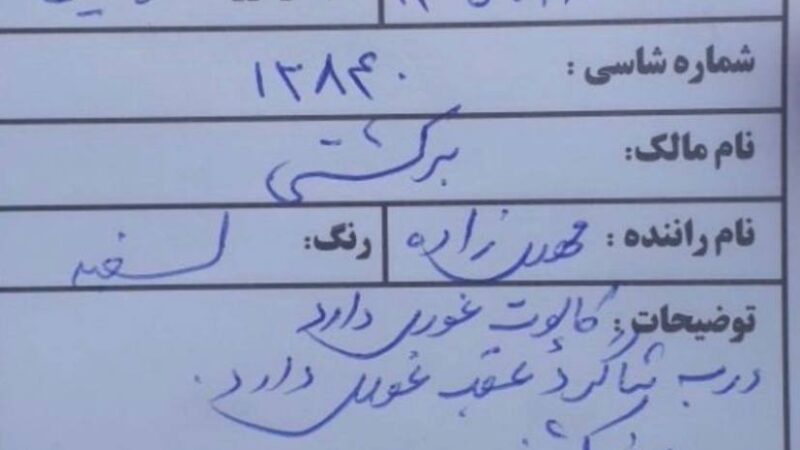 شماره شاسی : ۱۳۸۴۰
نام مالک: برگشتی
نام راننده : مهدی زاده رنگ: سفید
توضیحات : کاپوت غوری دارد
درب شاگرد عقب غوری دارد .